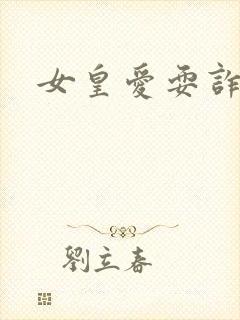 女皇愛耍詐
劉立春